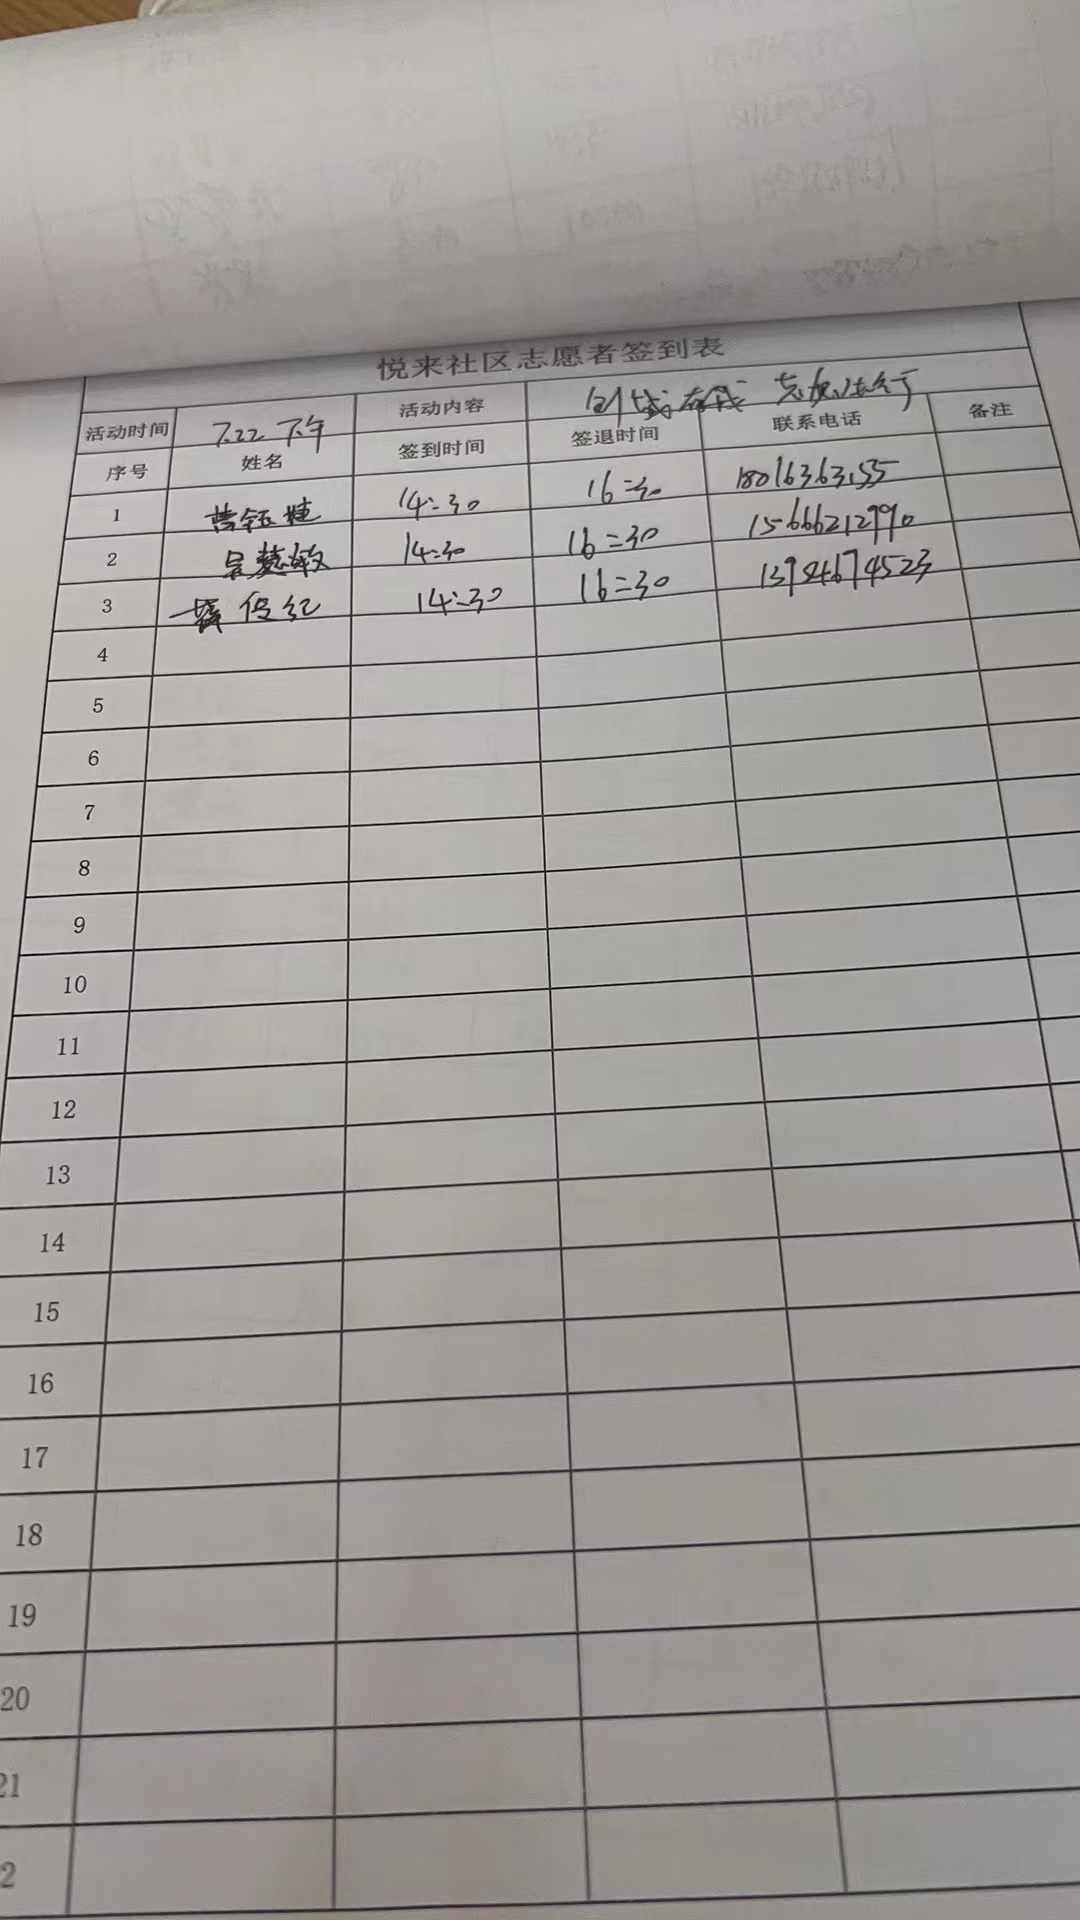 悦来社区志愿者签到表
活动时间 7.22 下午 活动内容 创城有我 志愿同行
序号 姓名 签到时间 签退时间 联系电话 备注
1 14:30 16:30 18016363155
2 吴慧敏 14:30 16:30 15666212990
3 14:30 16:30 13794674523
4
5
6
7
8
9
10
11
12
13
14
15
16
17
18
19
20
21
2